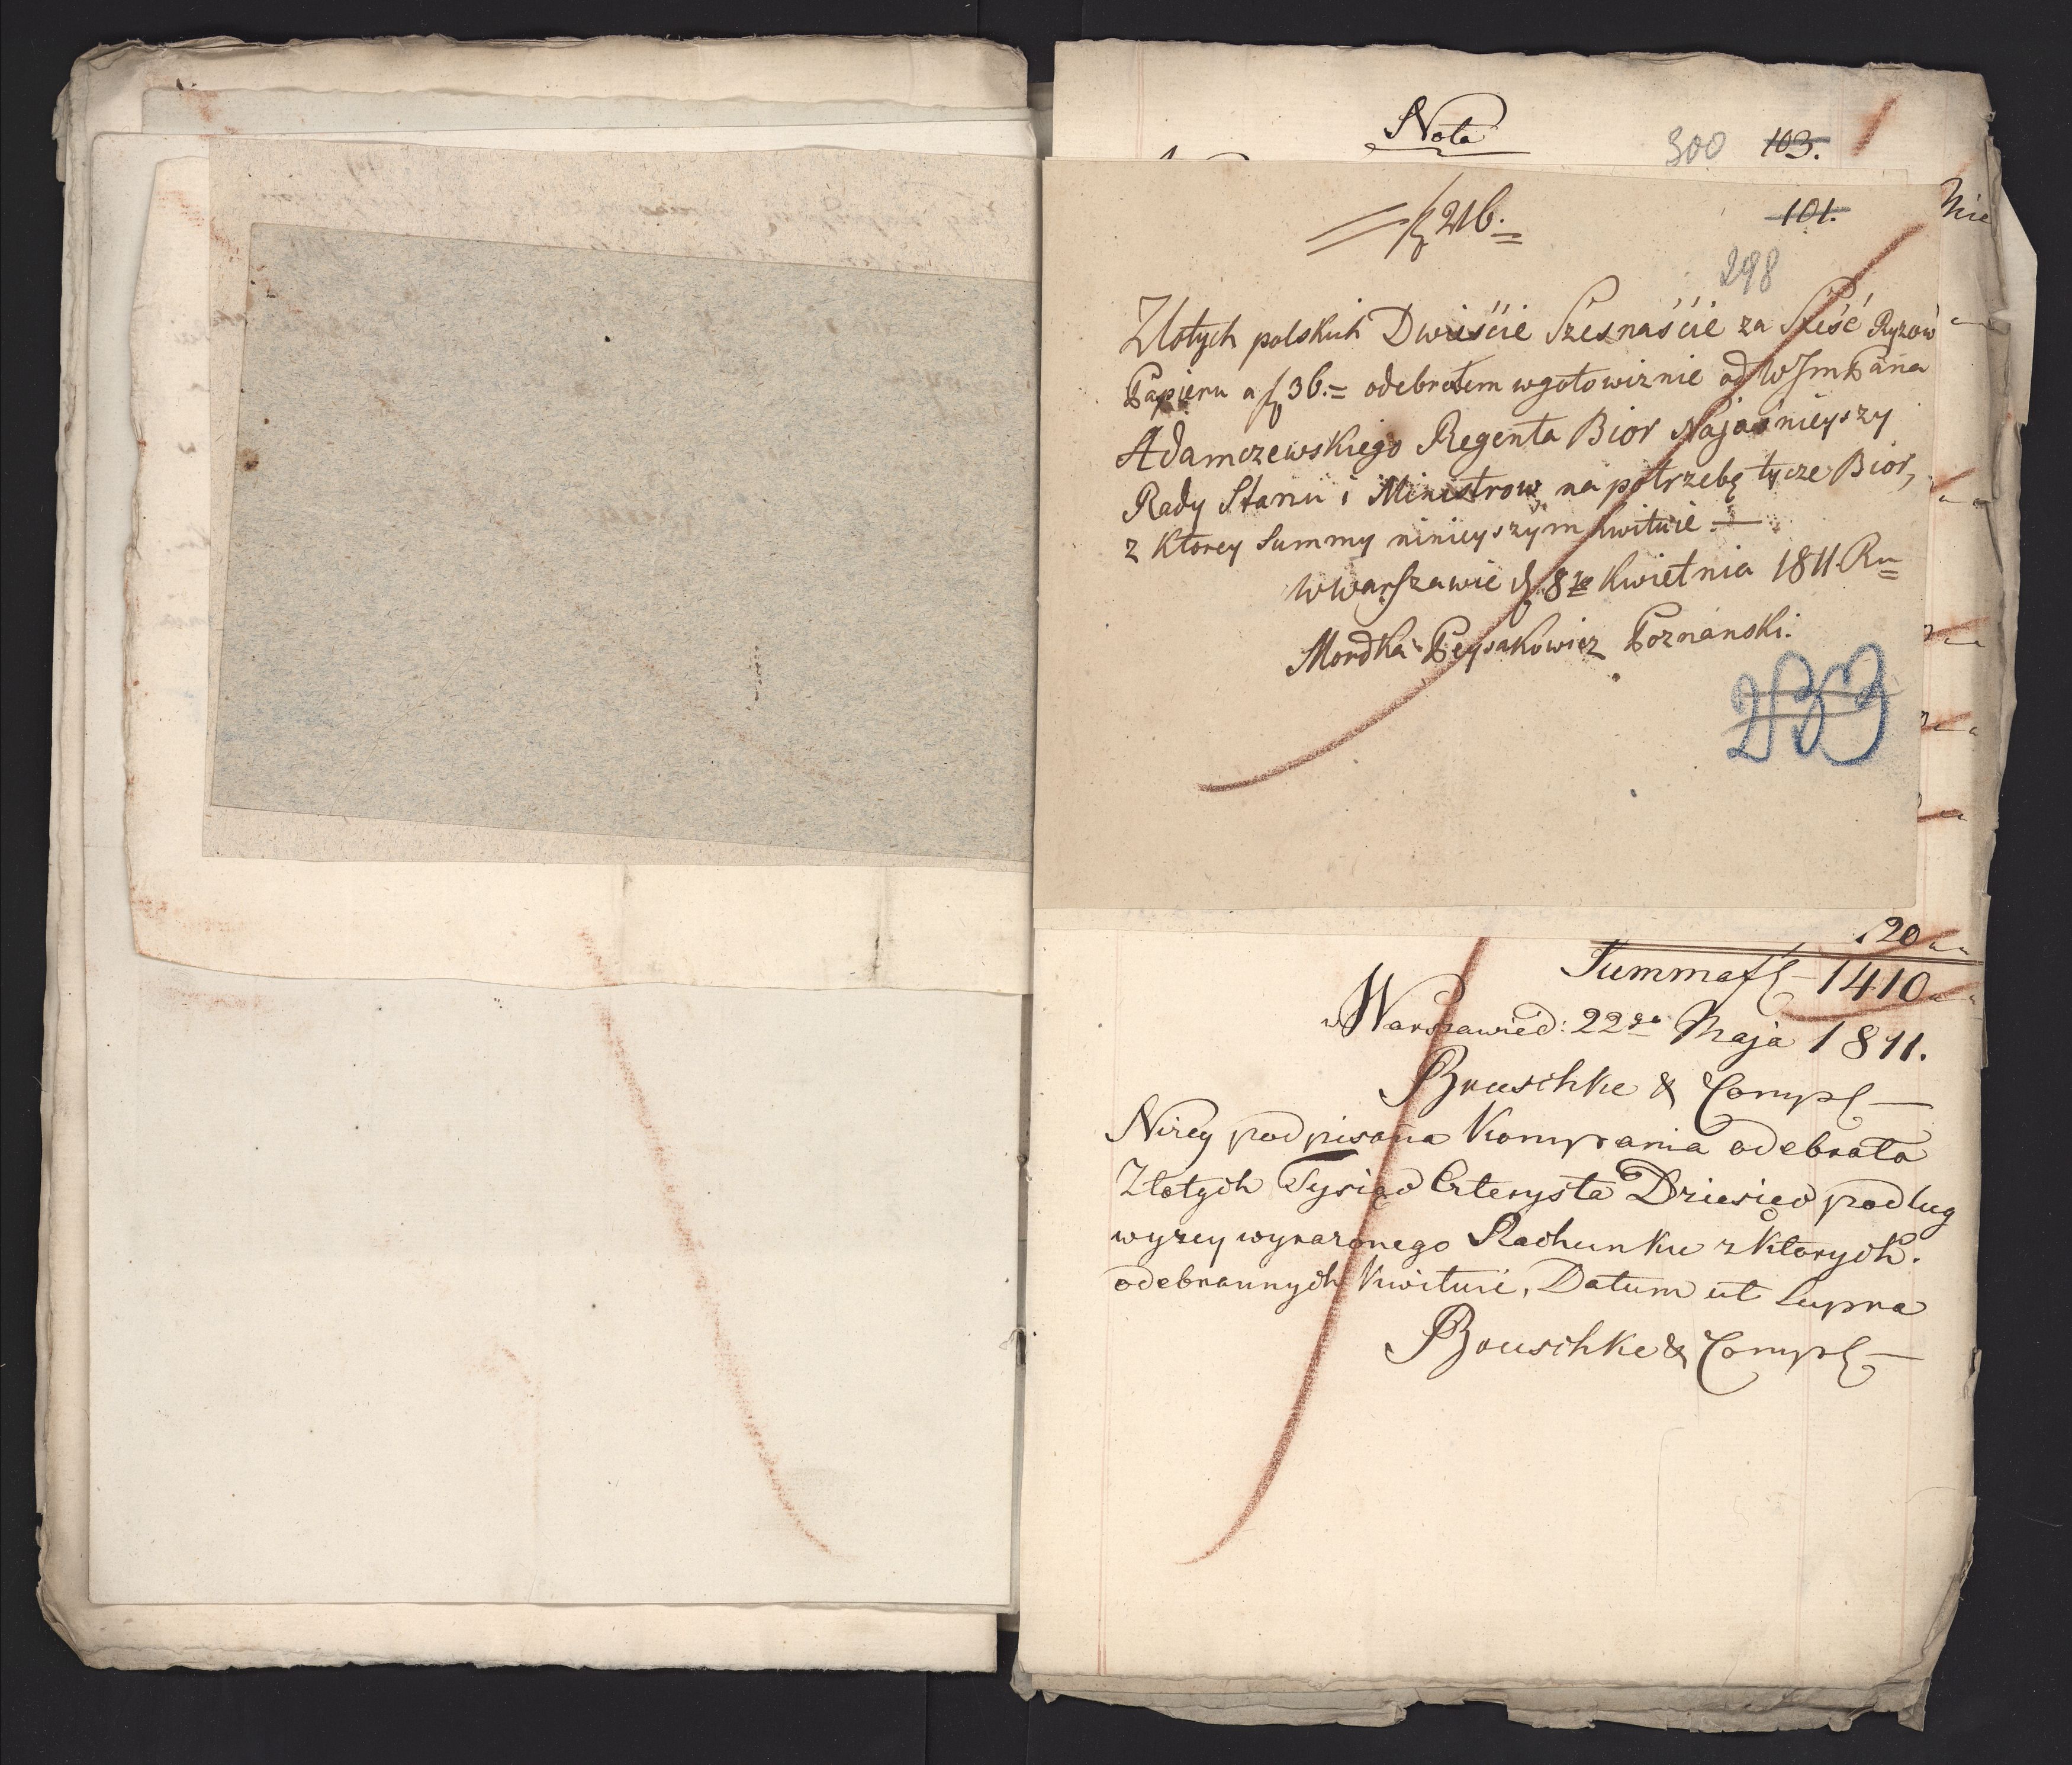 Nota
300 103.
fl 216.
101.
Nie
298
Złotych polskich Dwieście Szesnaście za Sześć Ryzow
Papieru a fl 36.= odebrałem w gotowiznie od WJmPana
Adamczewskiego Regenta Bior Najaśnieyszy
Rady Stanu i Ministrow na potrzebę tycze Bior,
z Ktorey Summy ninieyszym kwituie.—
w Warszawie d. 8go Kwietnia 1811 Ru
Mordka Peysakowicz Poznanski.
20
Summa fl 1410
w Warszawie d: 22go Maja 1811.
Bruschke & Comp
Nizey podpisana Kompania odebrała
Złotych Tysiąc Czterysta Dziesięc podług
wyzey wyrazonego Rachunku z ktorych.
odebrannych kwituie, Datum ut Supra
Bruschke & Comp